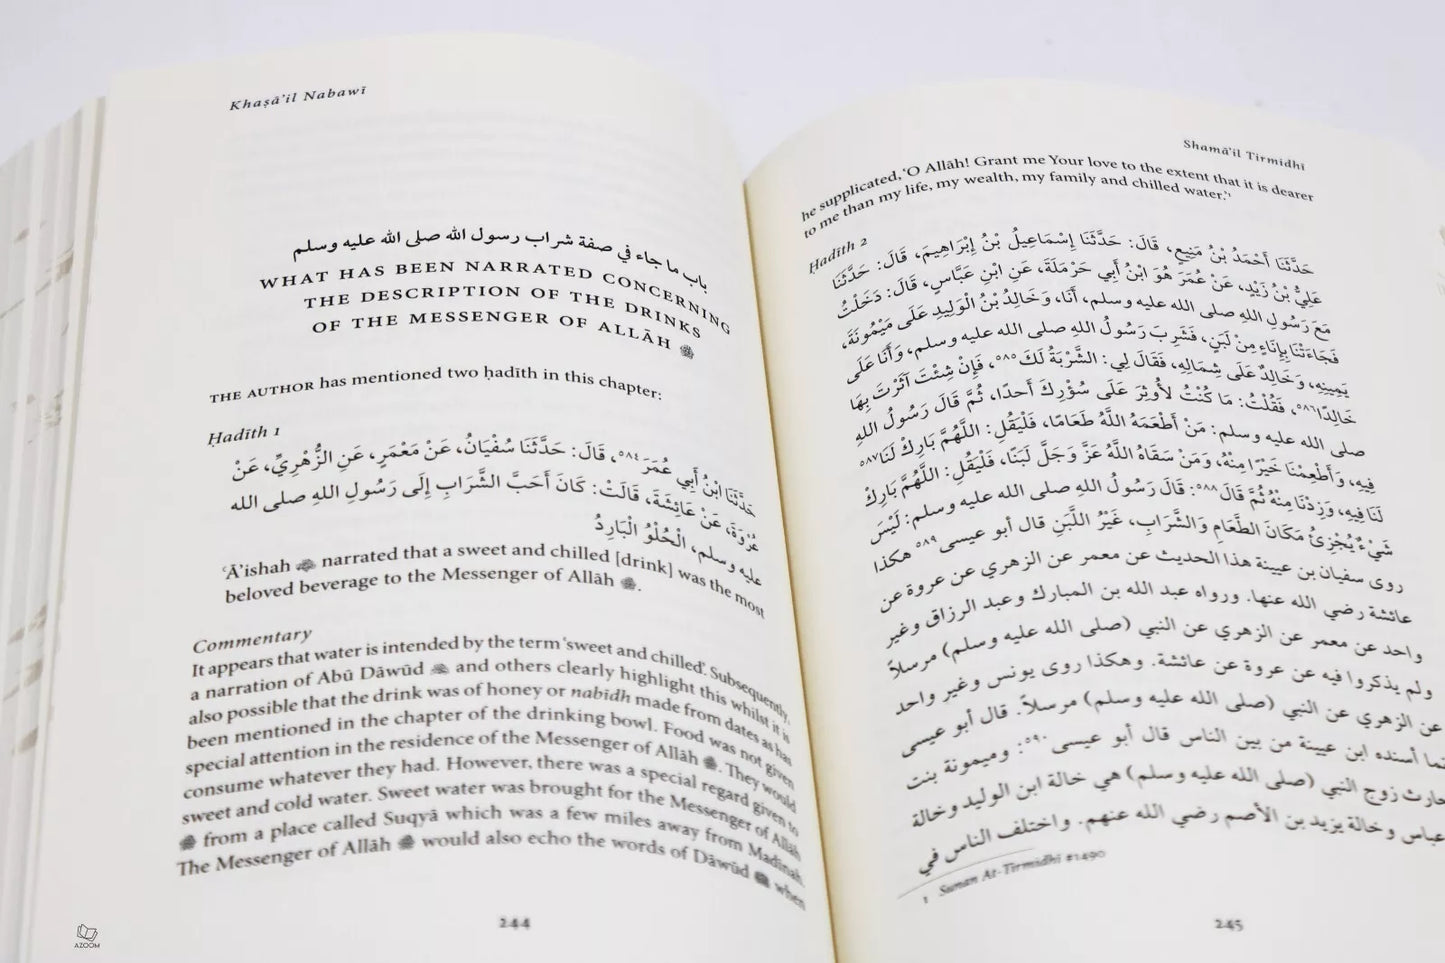 Khaṣā'il Nabawī
باب ما جاء في صفة شراب رسول الله صلى الله عليه وسلم
WHAT HAS BEEN NARRATED CONCERNING
THE DESCRIPTION OF THE DRINKS
OF THE MESSENGER OF ALLĀH ﷺ
THE AUTHOR has mentioned two ḥadīth in this chapter:
Ḥadīth 1
حَدَّثَنَا ابْنُ أَبِي عُمَرَ٥٨٤، قَالَ: حَدَّثَنَا سُفْيَانُ، عَنْ مَعْمَرٍ، عَنِ الزُّهْرِيِّ، عَنْ
عُرْوَةَ، عَنْ عَائِشَةَ، قَالَتْ: كَانَ أَحَبَّ الشَّرَابِ إِلَى رَسُولِ اللهِ صلى الله
عليه وسلم، الْحُلْوُ الْبَارِدُ
ʿĀ'ishah narrated that a sweet and chilled [drink] was the most
beloved beverage to the Messenger of Allāh ﷺ.
Commentary
It appears that water is intended by the term 'sweet and chilled'. Subsequently,
a narration of Abū Dāwūd and others clearly highlight this whilst it is
also possible that the drink was of honey or nabīdh made from dates as has
been mentioned in the chapter of the drinking bowl. Food was not given
special attention in the residence of the Messenger of Allāh ﷺ. They would
consume whatever they had. However, there was a special regard given to
sweet and cold water. Sweet water was brought for the Messenger of Allāh
ﷺ from a place called Suqyā which was a few miles away from Madīnah.
The Messenger of Allāh ﷺ would also echo the words of Dāwūd when
244
AZOOM
Shamā'il Tirmidhī
he supplicated, 'O Allāh! Grant me Your love to the extent that it is dearer
to me than my life, my wealth, my family and chilled water.'¹
Ḥadīth 2
حَدَّثَنَا أَحْمَدُ بْنُ مَنِيعٍ، قَالَ: حَدَّثَنَا إِسْمَاعِيلُ بْنُ إِبْرَاهِيمَ، قَالَ: حَدَّثَنَا
عَلِيُّ بْنُ زَيْدٍ، عَنْ عُمَرَ هُوَ ابْنُ أَبِي حَرْمَلَةَ، عَنِ ابْنِ عَبَّاسٍ، قَالَ: دَخَلْتُ
مَعَ رَسُولِ اللهِ صلى الله عليه وسلم، أَنَا، وَخَالِدُ بْنُ الْوَلِيدِ عَلَى مَيْمُونَةَ،
فَجَاءَتْنَا بِإِنَاءٍ مِنْ لَبَنٍ، فَشَرِبَ رَسُولُ اللهِ صلى الله عليه وسلم، وَأَنَا عَلَى
يَمِينِهِ، وَخَالِدٌ عَلَى شِمَالِهِ، فَقَالَ لِي: الشَّرْبَةُ لَكَ٥٨٥، فَإِنْ شِئْتَ آثَرْتَ بِهَا
خَالِدًا٥٨٦، فَقُلْتُ: مَا كُنْتُ لأُوثِرَ عَلَى سُؤْرِكَ أَحَدًا، ثُمَّ قَالَ رَسُولُ اللهِ
صلى الله عليه وسلم: مَنْ أَطْعَمَهُ اللَّهُ طَعَامًا، فَلْيَقُلِ: اللَّهُمَّ بَارِكْ لَنَا٥٨٧
فِيهِ، وَأَطْعِمْنَا خَيْرًا مِنْهُ، وَمَنْ سَقَاهُ اللَّهُ عَزَّ وَجَلَّ لَبَنًا، فَلْيَقُلِ: اللَّهُمَّ بَارِكْ
لَنَا فِيهِ، وَزِدْنَا مِنْهُ ثُمَّ قَالَ٥٨٨: قَالَ رَسُولُ اللهِ صلى الله عليه وسلم: لَيْسَ
شَيْءٌ يُجْزِئُ مَكَانَ الطَّعَامِ وَالشَّرَابِ، غَيْرُ اللَّبَنِ قال أبو عيسى٥٨٩ هكذا
روى سفيان بن عيينة هذا الحديث عن معمر عن الزهري عن عروة عن
عائشة رضي الله عنها. ورواه عبد الله بن المبارك وعبد الرزاق وغير
واحد عن معمر عن الزهري عن النبي (صلى الله عليه وسلم) مرسلاً
ولم يذكروا فيه عن عروة عن عائشة. وهكذا روى يونس وغير واحد
عن الزهري عن النبي (صلى الله عليه وسلم) مرسلاً. قال أبو عيسى
نما أسنده ابن عيينة من بين الناس قال أبو عيسى٥٩٠: وميمونة بنت
حارث زوج النبي (صلى الله عليه وسلم) هي خالة ابن الوليد وخالة
عباس وخالة يزيد بن الأصم رضي الله عنهم. واختلف الناس في
1 Sunan At-Tirmidhī #1490
245